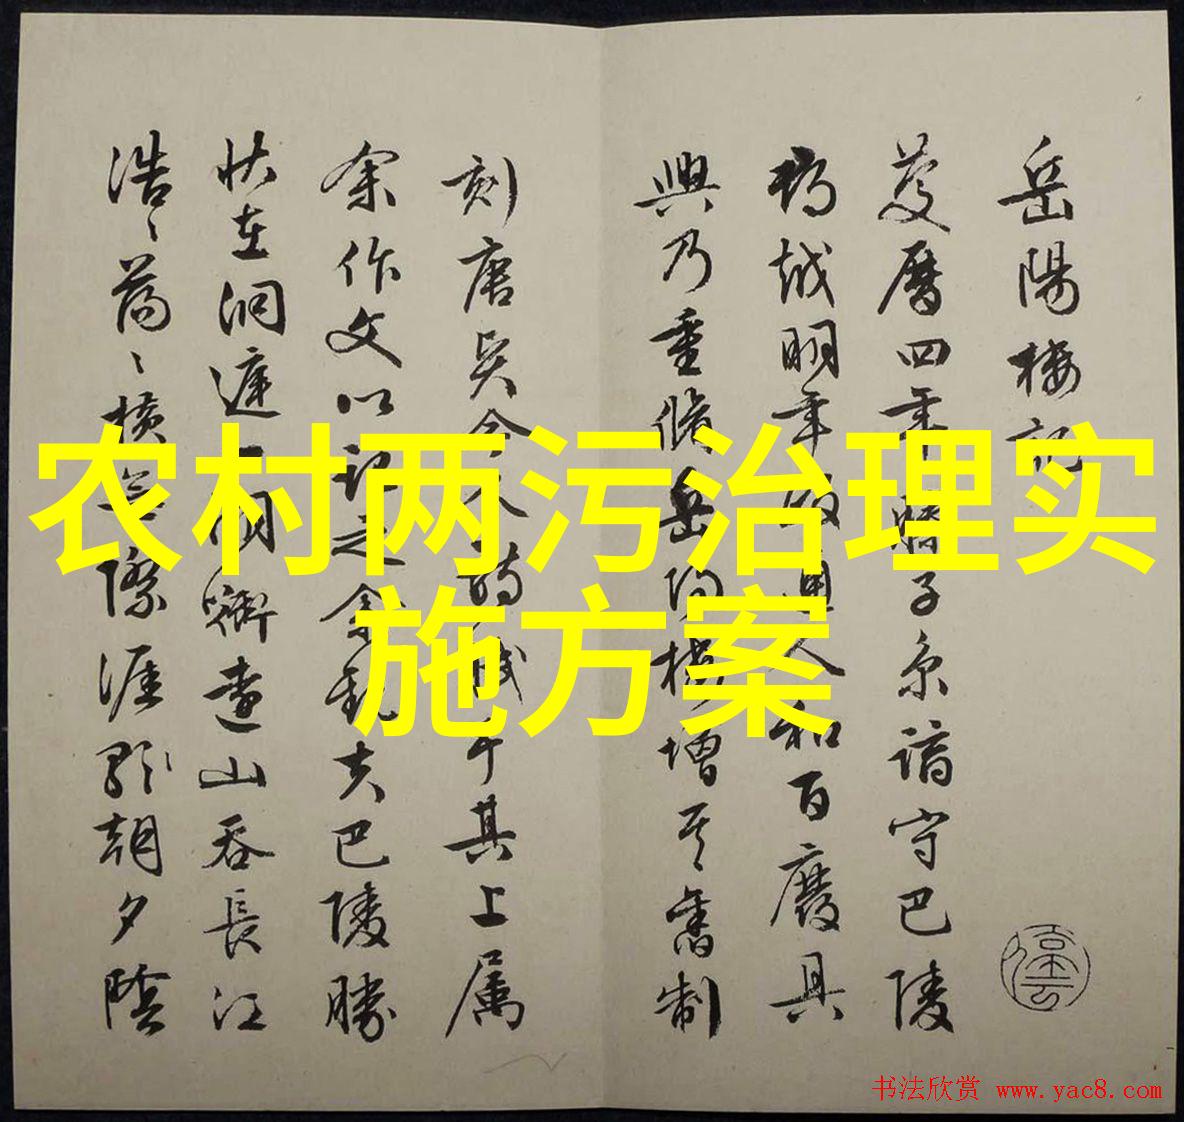 岳陽樓記
慶曆四年滕子京謫守巴陵
郡越明年政通人和百廢具
興乃重修岳陽樓增其舊制
刻唐賢今人詩賦于其上屬
余作文以記之余觀夫巴陵勝
狀在洞庭一湖銜遠山吞長江
浩〻蕩〻橫無際涯朝夕陰
农村两污治理实
施方案
书法欣赏 www.yac8.com